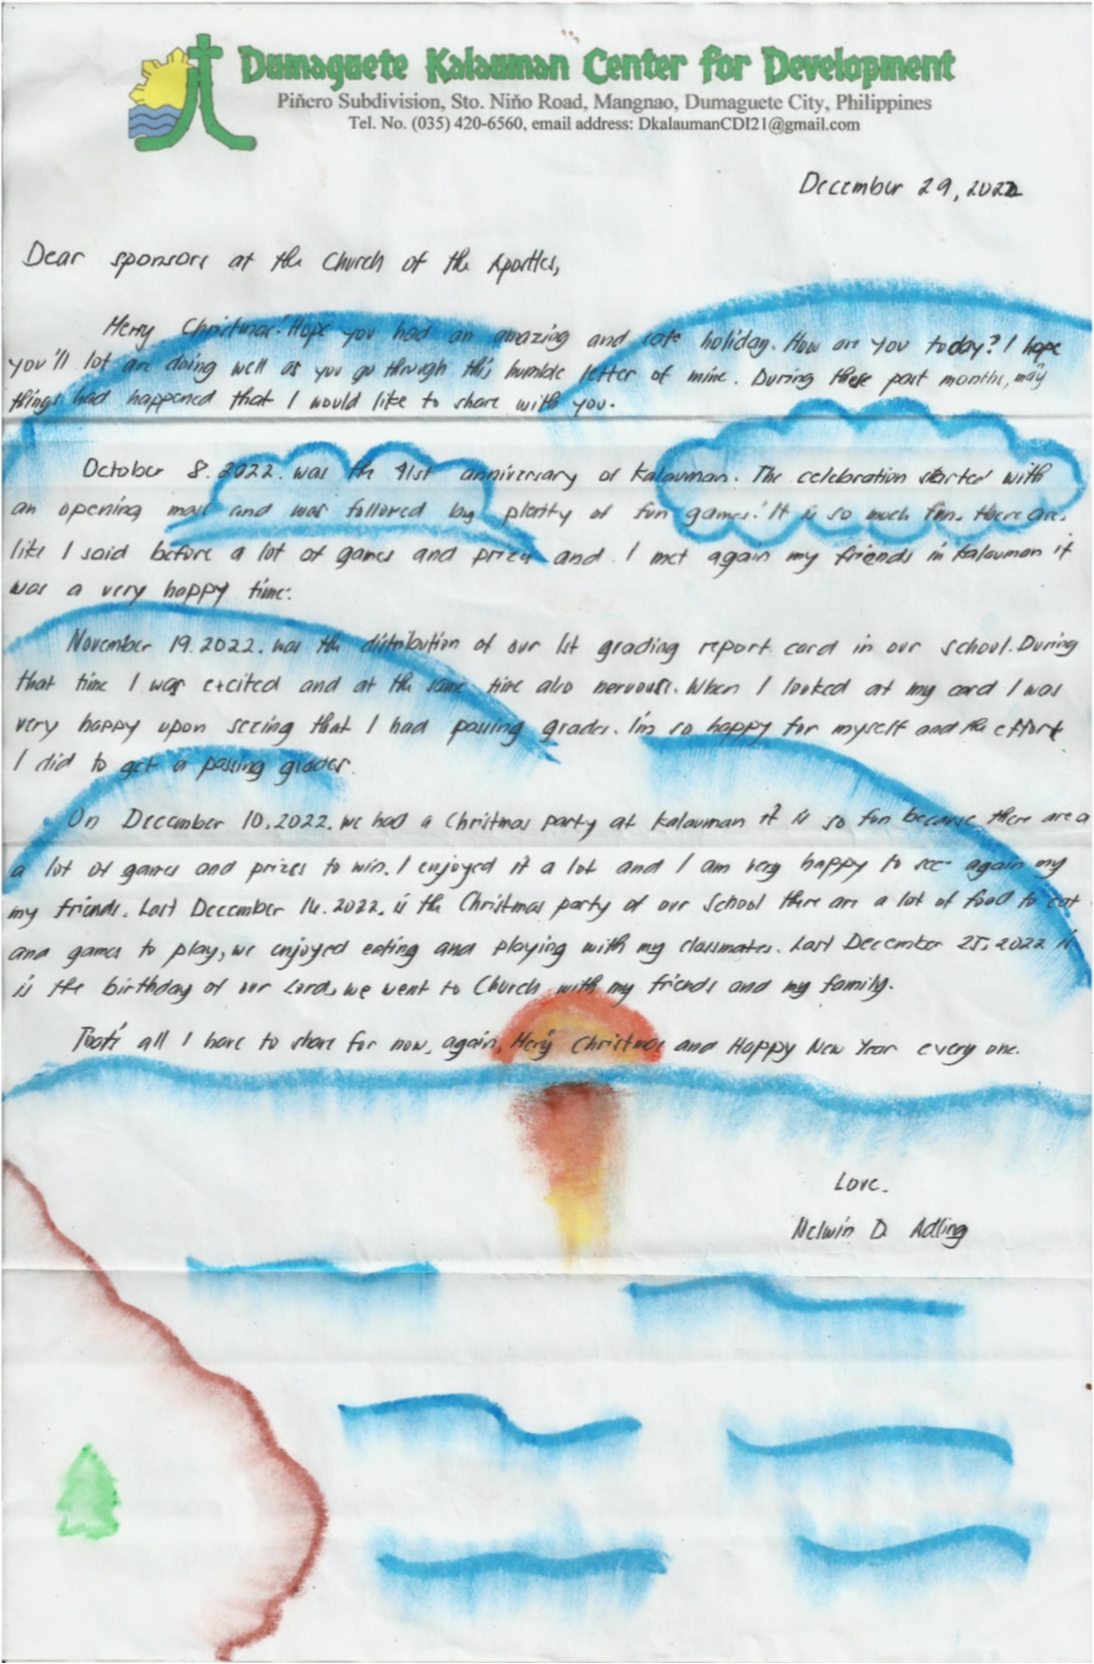 Dumaguete Kalauman Center for Development
Piñero Subdivision, Sto. Niño Road, Mangnao, Dumaguete City, Philippines
Tel. No. (035) 420-6560, email address: DkalaumanCDI21@gmail.com
December 29, 2022
Dear sponsors at the Church of the Apostles,
Merry Christmas! Hope you had an amazing and safe holiday. How are you today? I hope
you'll lot are doing well as you go through this humble letter of mine. During these past months, may
things had happened that I would like to share with you.
October 8. 2022. was the 41st anniversary of Kalauman. The celebration started with
an opening mass and was followed by plenty of fun games! It is so much fun. there are.
like I said before a lot of games and prizes and I met again my friends in Kalauman it
was a very happy time.
November 19. 2022. was the distribution of our 1st grading report card in our school. During
that time I was excited and at the same time also nervous. When I looked at my card I was
very happy upon seeing that I had passing grades. I'm so happy for myself and the effort
I did to get a passing grades.
On December 10. 2022. we had a Christmas party at Kalauman it is so fun because there are a
a lot of games and prizes to win. I enjoyed it a lot and I am very happy to see again my
my friends. Last December 16. 2022. is the Christmas party of our School there are a lot of food to eat
and games to play, we enjoyed eating and playing with my classmates. Last December 25. 2022 is
is the birthday of our Lord, we went to Church with my friends and my family.
That's all I have to share for now, again, Merry Christmas and Happy New Year every one.
Love.
Nelwin D. Adling